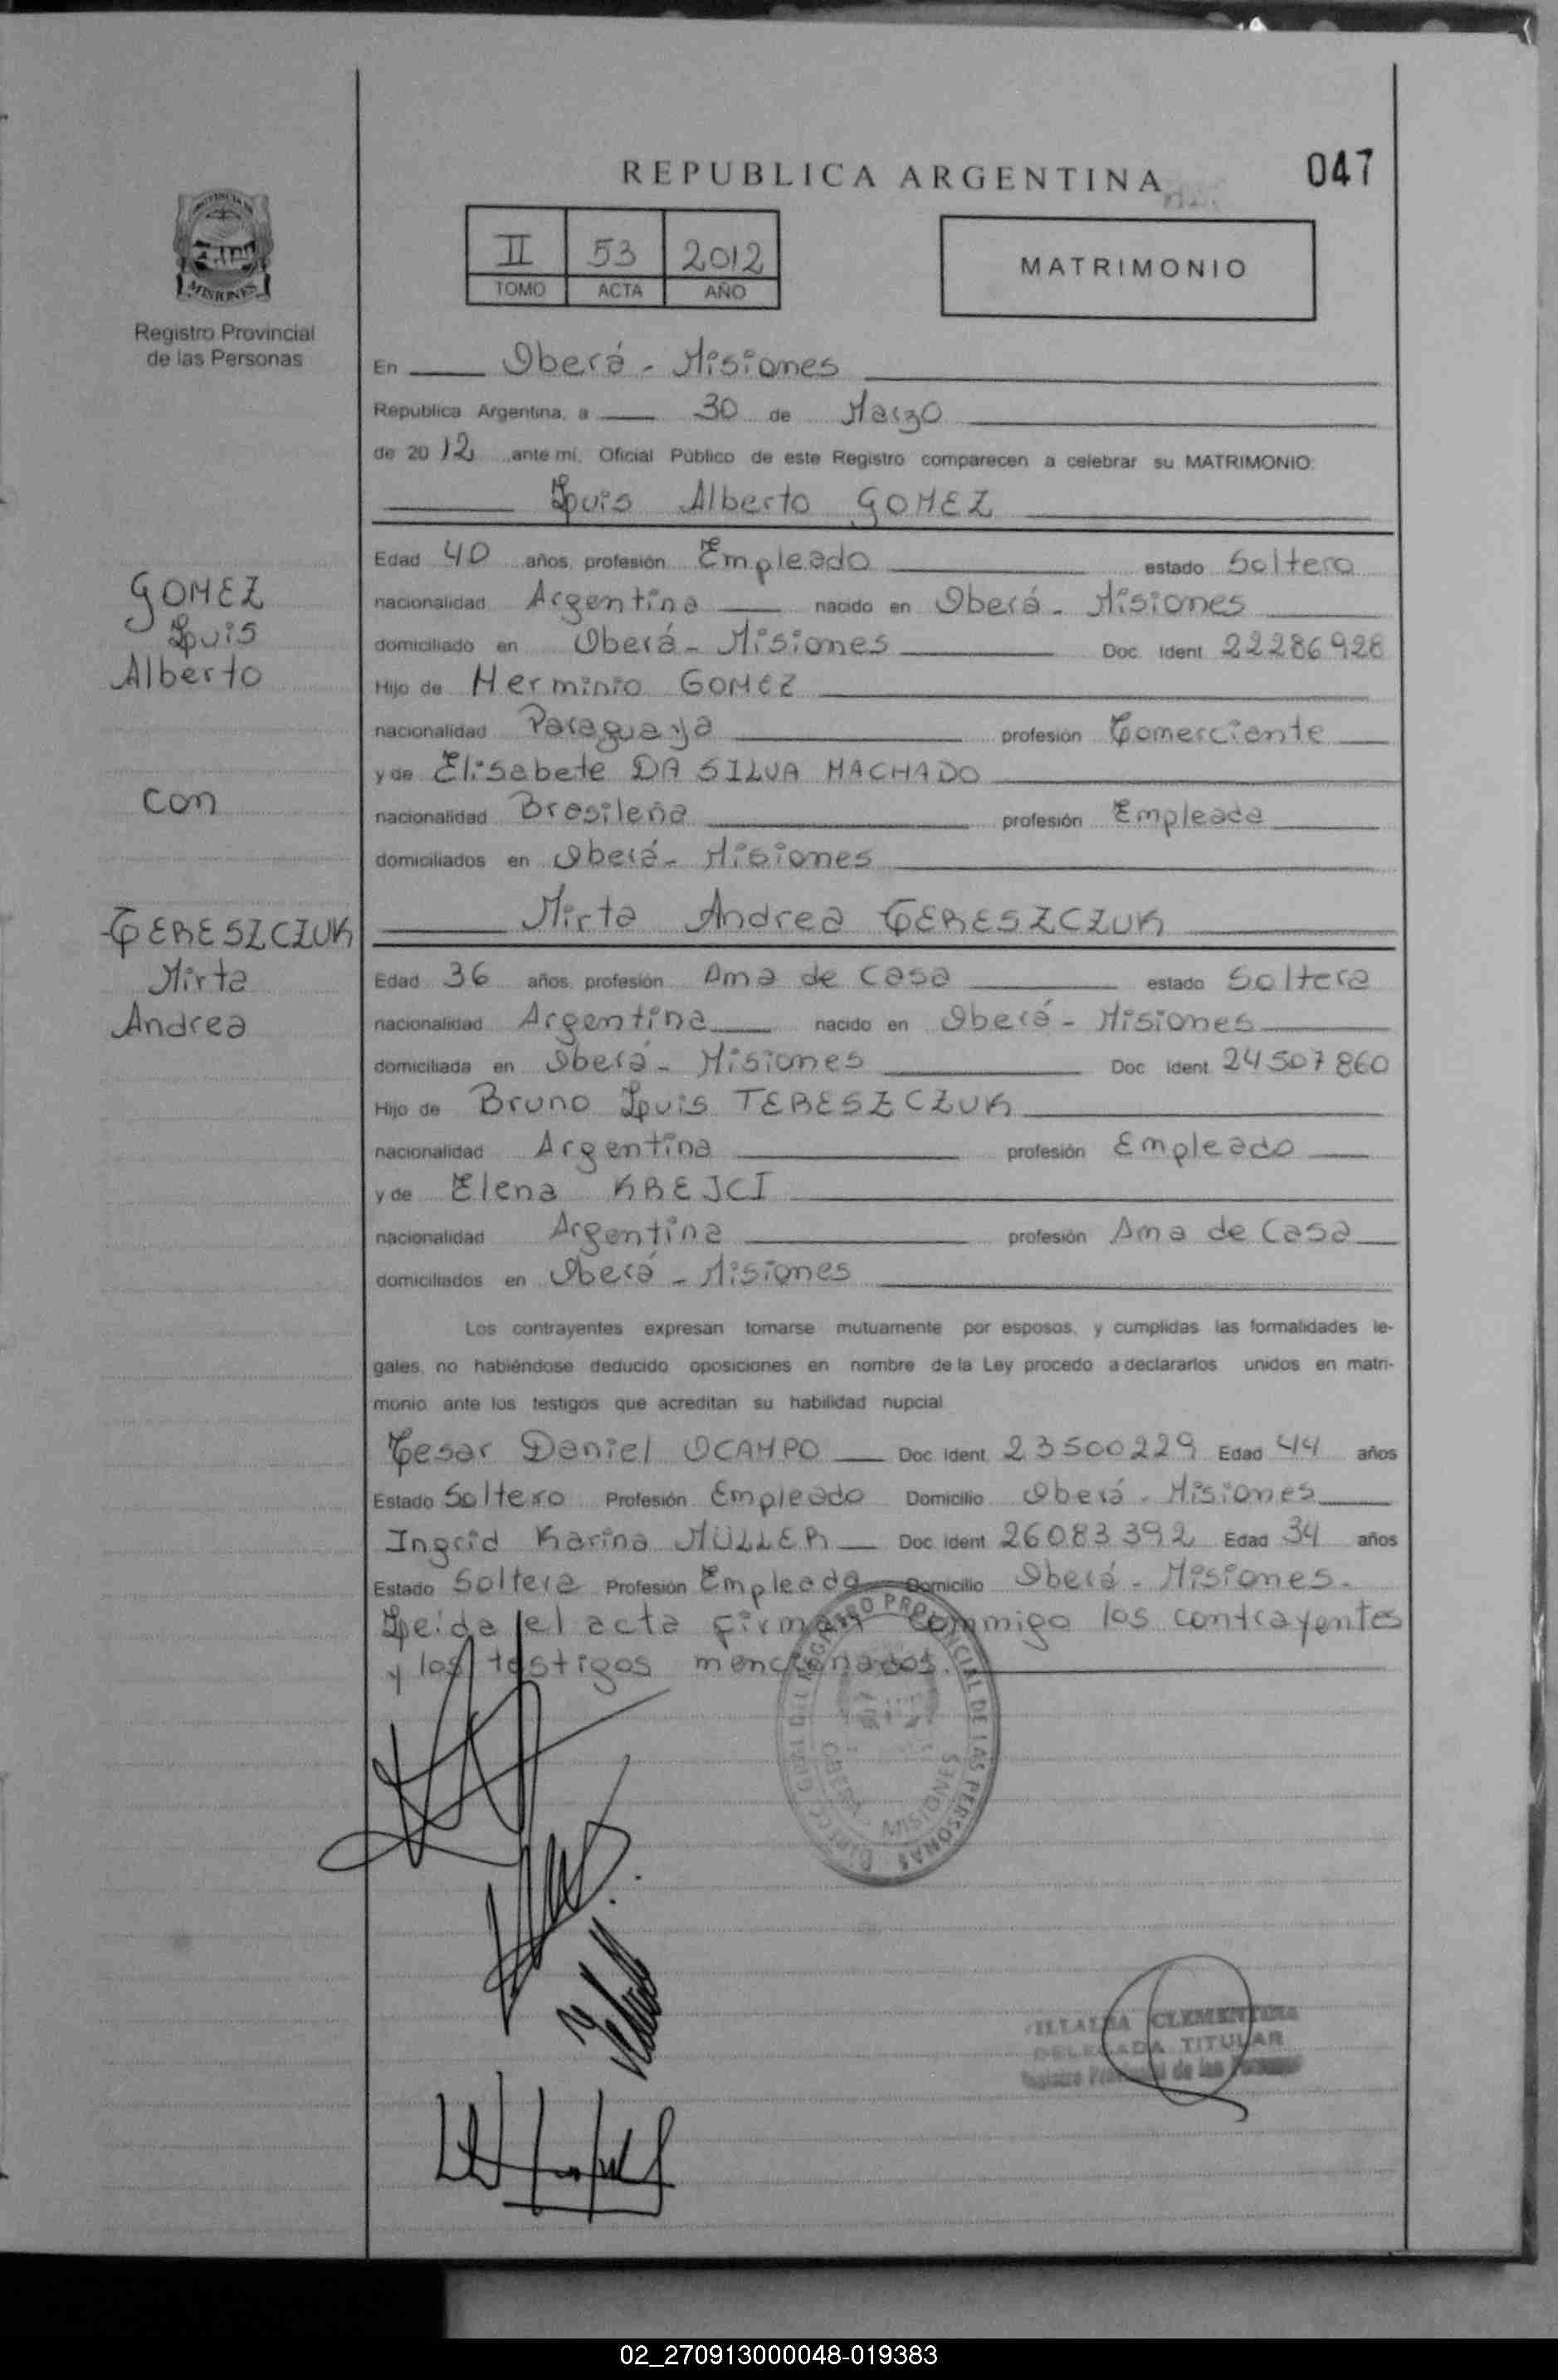 REPUBLICA ARGENTINA
047
II 53 2012
TOMO ACTA AÑO
MATRIMONIO
MISIONES
Registro Provincial
de las Personas
En Oberá - Misiones
Republica Argentina, a 30 de Marzo
de 2012 ante mí, Oficial Público de este Registro comparecen a celebrar su MATRIMONIO:
Luis Alberto GOMEZ
Edad 40 años, profesión Empleado estado Soltero
nacionalidad Argentina nacido en Oberá - Misiones
domiciliado en Oberá - Misiones Doc. Ident 22286928
Hijo de Herminio GOMEZ
nacionalidad Paraguaya profesión Comerciante
y de Elisabete DA SILVA MACHADO
nacionalidad Brasileña profesión Empleada
domiciliados en Oberá - Misiones
Mirta Andrea TERESZCZUK
Edad 36 años, profesión Ama de Casa estado Soltera
nacionalidad Argentina nacido en Oberá - Misiones
domiciliada en Oberá - Misiones Doc Ident 24507860
Hijo de Bruno Luis TERESZCZUK
nacionalidad Argentina profesión Empleado
y de Elena KREJCI
nacionalidad Argentina profesión Ama de Casa
domiciliados en Oberá - Misiones
GOMEZ
Luis
Alberto
con
TERESZCZUK
Mirta
Andrea
Los contrayentes expresan tomarse mutuamente por esposos, y cumplidas las formalidades le-
gales, no habiéndose deducido oposiciones en nombre de la Ley procedo a declararlos unidos en matri-
monio ante los testigos que acreditan su habilidad nupcial
Cesar Daniel OCAMPO Doc. Ident 23500229 Edad 44 años
Estado Soltero Profesión Empleado Domicilio Oberá - Misiones
Ingrid Karina MÜLLER Doc Ident 26083392 Edad 34 años
Estado Soltera Profesión Empleada Domicilio Oberá - Misiones.
Leída el acta firman conmigo los contrayentes
y los testigos mencionados.
REGISTRO PROVINCIAL DE LAS PERSONAS
OBERA MISIONES
VILLALBA CLEMENTINA
DELEGADA TITULAR
Registro Provincial de las Personas
02_270913000048-019383